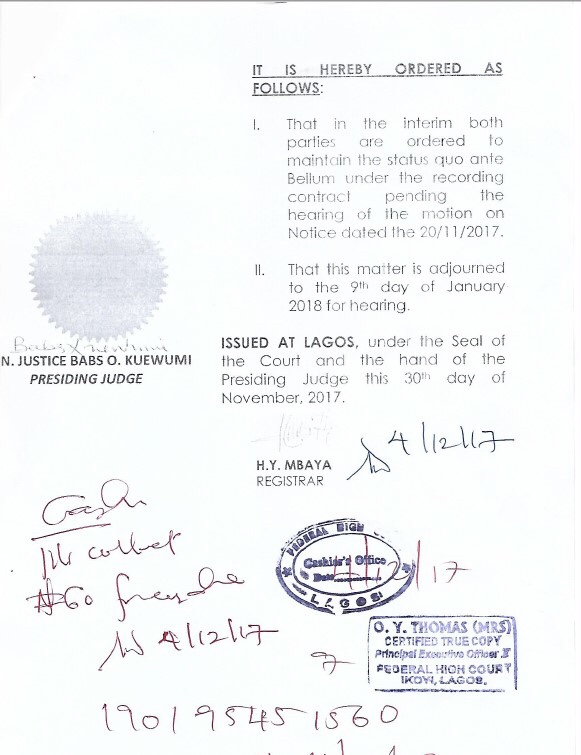 IT IS HEREBY ORDERED AS
FOLLOWS:
I. That in the interim both
parties are ordered to
maintain the status quo ante
Bellum under the recording
contract pending the
hearing of the motion on
Notice dated the 20/11/2017.
II. That this matter is adjourned
to the 9th day of January
2018 for hearing.
Babs Kuewumi
N. JUSTICE BABS O. KUEWUMI
PRESIDING JUDGE
ISSUED AT LAGOS, under the Seal of
the Court and the hand of the
Presiding Judge this 30th day of
November, 2017.
4/12/17
H.Y. MBAYA
REGISTRAR
collect
₦60
4/12/17
FEDERAL HIGH
Cashier's Office
Date
LAGOS
12/17
O. Y. THOMAS (MRS)
CERTIFIED TRUE COPY
Principal Executive Officer II
FEDERAL HIGH COURT
IKOYI, LAGOS.
7
1901 9545 1560